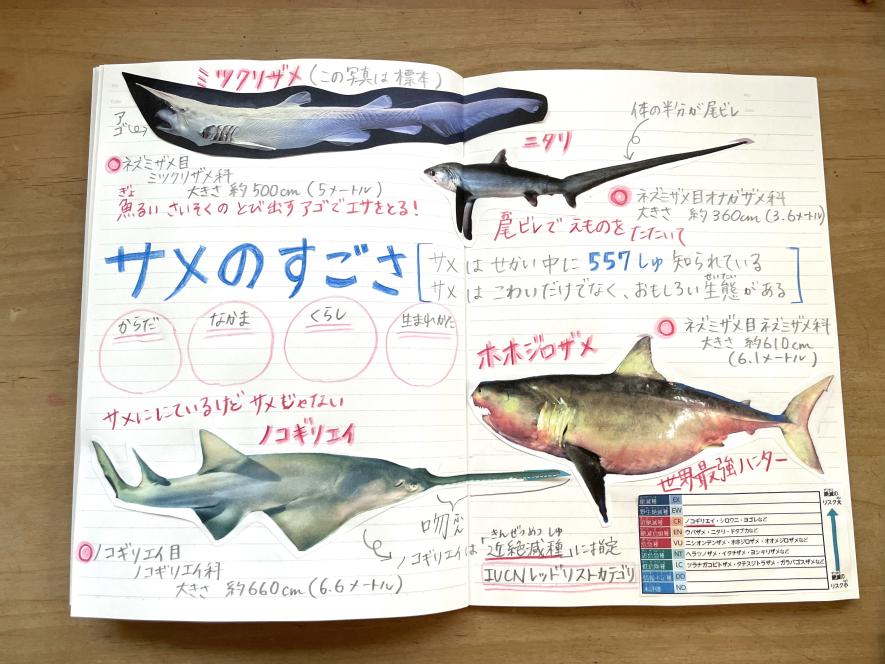 ミツクリザメ(この写真は標本)
アゴ
ネズミザメ目
ミツクリザメ科
大きさ 約500cm(5メートル)
ぎょ
魚るい さいそくの とび出す アゴで エサをとる!
体の半分が尾ビレ
ニタリ
ネズミザメ目オナガザメ科
大きさ 約360cm(3.6メートル)
尾ビレで えものを たたいて
サメのすごさ
サメ は せかい中に 557しゅ 知られている
せいたい
サメ は こわいだけでなく、おもしろい 生態がある
からだ
なかま
くらし
生まれかた
ホホジロザメ
ネズミザメ目 ネズミザメ科
大きさ 約610cm
(6.1メートル)
世界最強ハンター
サメににているけど サメじゃない
ノコギリエイ
吻
ふん
ノコギリエイ目
ノコギリエイ科
大きさ 約660cm(6.6メートル)
きんぜつめつしゅ
ノコギリエイは「近絶滅種」に指定
IUCNレッドリストカテゴリ
絶滅種 EX
野生絶滅種 EW
近絶滅種 CR ノコギリエイ・シロワニ・ヨゴレなど
絶滅危惧種 EN ウバザメ・ニタリ・ドタブカなど
危急種 VU ニシオンデンザメ・ホホジロザメ・オオメジロザメなど
近危急種 NT ヘラツノザメ・イタチザメ・ヨシキリザメなど
低危険種 LC ツラナガコビトザメ・タテスジトラザメ・ガラパゴスザメなど
情報不足種 DD
未評価 ND
絶滅の
リスク大
絶滅の
リスク小